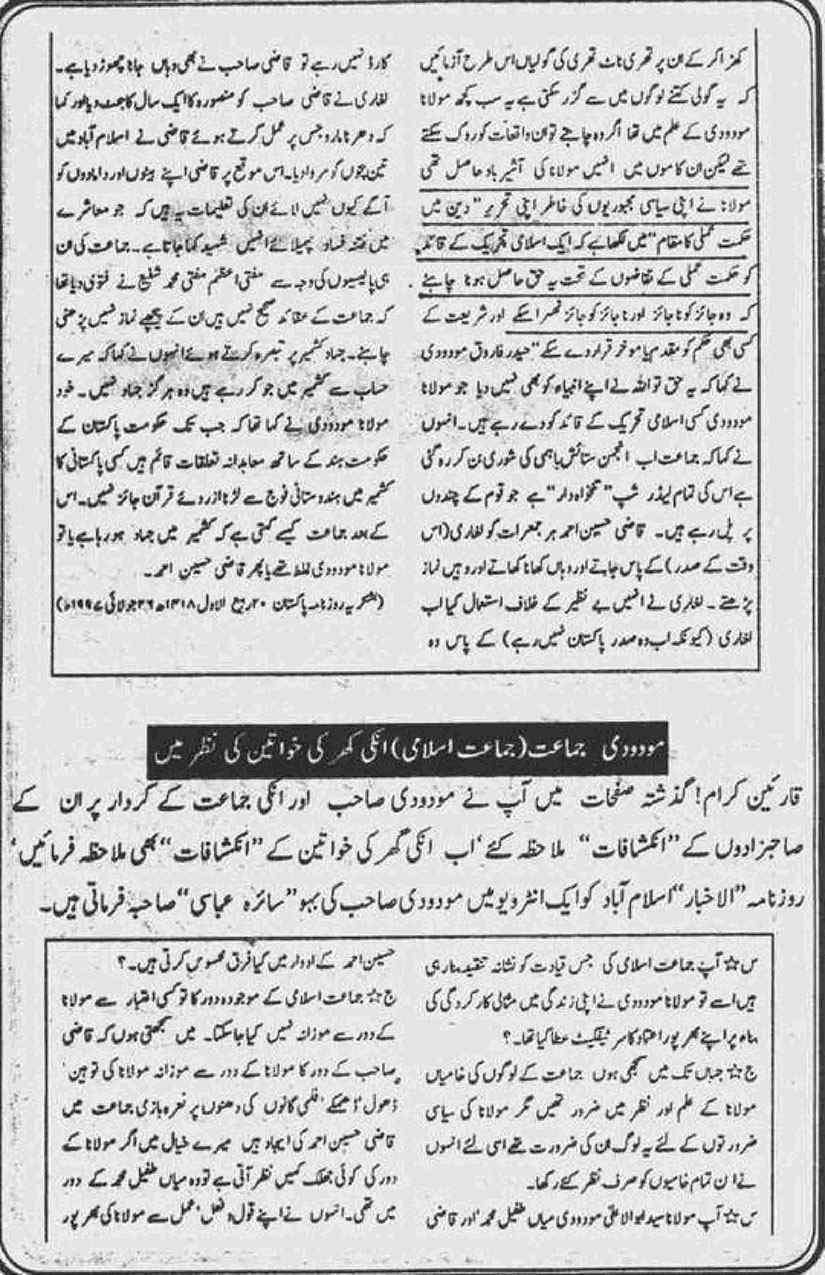 کھڑا کر کے ان پر تھری ناٹ تھری کی گولیاں اس طرح آزمائیں
کہ یہ گولی کتنے لوگوں میں سے گزر سکتی ہے یہ سب کچھ مولانا
مودودی کے علم میں تھا اگر وہ چاہتے تو ان واقعات کو روک سکتے
تھے لیکن ان کاموں میں انہیں مولانا کی آشیر باد حاصل تھی
مولانا نے اپنی سیاسی مجبوریوں کی خاطر اپنی تحریر "دین میں
حکمت عملی کا مقام" میں لکھا ہے کہ ایک اسلامی تحریک کے قائد
کو حکمت عملی کے تقاضوں کے تحت یہ حق حاصل ہونا چاہئے
کہ وہ جائز کو ناجائز اور ناجائز کو جائز ٹھہرا سکے اور شریعت کے
کسی بھی حکم کو مقدم یا موخر قرار دے سکے" حیدر فاروق مودودی
نے کہا کہ یہ حق تو اللہ نے اپنے انبیاء کو بھی نہیں دیا جو مولانا
مودودی کسی اسلامی تحریک کے قائد کو دے رہے ہیں۔ انہوں
نے کہا کہ جماعت اب انجمن ستائش باہمی کی شوری بن کر رہ گئی
ہے اس کی تمام لیڈر شپ "تنخواہ دار" ہے جو قوم کے چندوں
پر پلی رہے ہیں۔ قاضی حسین احمد ہر جمعرات کو لغاری (اس
وقت کے صدر) کے پاس جاتے اور وہاں کھانا کھاتے اور وہیں نماز
پڑھتے۔ لغاری نے انہیں بے نظیر کے خلاف استعمال کیا اب
لغاری (کیونکہ اب وہ صدر پاکستان نہیں رہے) کے پاس وہ
کارڈ نہیں رہے تو قاضی صاحب نے بھی وہاں جانا چھوڑ دیا ہے۔
لغاری نے قاضی صاحب کو منصورہ کا ایک سال کا بجٹ دیا اور کہا
کہ دھرنا مارو جس پر عمل کرتے ہوئے قاضی نے اسلام آباد میں
تین بچوں کو مروا دیا۔ اس موقع پر قاضی اپنے بیٹوں اور دامادوں کو
آگے کیوں نہیں لائے ان کی تعلیمات یہ ہیں کہ جو معاشرے
میں فتنہ فساد پھیلائے انہیں شہید کہا جاتا ہے۔ جماعت کی ان
ہی پالیسیوں کی وجہ سے مفتی اعظم مفتی محمد شفیع نے فتوی دیا تھا
کہ جماعت کے عقائد صحیح نہیں ہیں ان کے پیچھے نماز نہیں پڑھنی
چاہئے۔ جہاد کشمیر پر تبصرہ کرتے ہوئے انہوں نے کہا کہ میرے
حساب سے کشمیر میں جو کر رہے ہیں وہ ہر گز جہاد نہیں۔ خود
مولانا مودودی نے کہا تھا کہ جب تک حکومت پاکستان کے
حکومت ہند کے ساتھ معاہدانہ تعلقات قائم ہیں کسی پاکستانی کا
کشمیر میں ہندوستانی فوج سے لڑنا از روئے قرآن جائز نہیں۔ اس
کے بعد جماعت کیسے کہتی ہے کہ کشمیر میں جہاد ہو رہا ہے یا تو
مولانا مودودی غلط تھے یا پھر قاضی حسین احمد۔
(بشکریہ روزنامہ پاکستان ۲۰ ربیع الاول ۱۴۱۸ھ ۲۶ جولائی ۱۹۹۷ء)
مودودی جماعت (جماعت اسلامی) انکی گھر کی خواتین کی نظر میں
قارئین کرام! گذشتہ صفحات میں آپ نے مودودی صاحب اور انکی جماعت کے کردار پر ان کے
صاحبزادوں کے "انکشافات" ملاحظہ کئے، اب انکی گھر کی خواتین کے "انکشافات" بھی ملاحظہ فرمائیں،
روزنامہ "الاخبار" اسلام آباد کو ایک انٹرویو میں مودودی صاحب کی بہو "سائرہ عباسی" صاحبہ فرماتی ہیں۔
س☆ آپ جماعت اسلامی کی جس قیادت کو نشانہ تنقید بنا رہی
ہیں اسے تو مولانا مودودی نے اپنی زندگی میں مثالی کارکردگی کی
بناء پر اپنے بھرپور اعتماد کا سرٹیفکیٹ عطا کیا تھا۔؟
ج☆ جہاں تک میں سمجھی ہوں جماعت کے لوگوں کی خامیاں
مولانا کے علم اور نظر میں ضرور تھیں مگر مولانا کی سیاسی
ضرورتوں کے لئے یہ لوگ ان کی ضرورت تھے اسی لئے انہوں
نے ان تمام خامیوں کو صرف نظر کئے رکھا۔
س☆ آپ مولانا سید ابوالاعلی مودودی میاں طفیل محمد اور قاضی
حسین احمد کے ادوار میں کیا فرق محسوس کرتی ہیں۔؟
ج☆ جماعت اسلامی کے موجودہ دور کا تو کسی اعتبار سے مولانا
کے دور سے موازنہ نہیں کیا جاسکتا۔ میں سمجھتی ہوں کہ قاضی
صاحب کے دور کا مولانا کے دور سے موازنہ مولانا کی توہین
ڈھول ڈھمکے، فلمی گانوں کی دھنوں پر نعرہ بازی جماعت میں
قاضی حسین احمد کی ایجاد ہیں میرے خیال میں اگر مولانا کے
دور کی کوئی جھلک کہیں نظر آتی ہے تو وہ میاں طفیل محمد کے دور
میں تھی۔ انہوں نے اپنے قول، فعل، عمل سے مولانا کی بھرپور